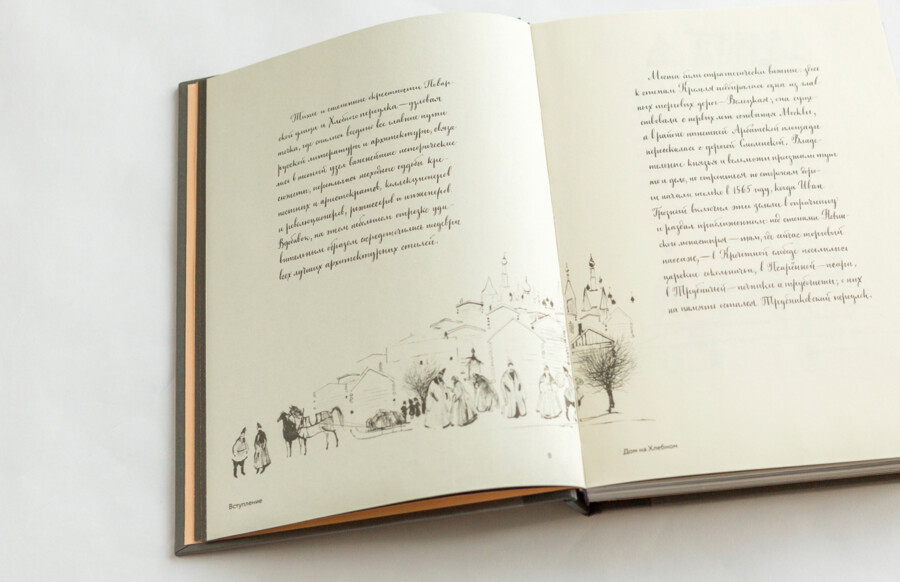 Тихие и степенные окрестности Повар-
ской улицы и Хлебного переулка — узловая
точка, где сошлись воедино все главные пути
русской литературы и архитектуры, связа-
лись в тесный узел важнейшие исторические
сюжеты, переплелись нехожие судьбы кре-
постных и аристократов, коллекционеров
и революционеров, режиссеров и инженеров.
Вдобавок, на этом небольшом отрезке уди-
вительным образом сосредоточились шедевры
всех лучших архитектурных стилей.
8
Вступление
Места были стратегически важные: здесь
к стенам Кремля подбиралась одна из глав-
ных торговых дорог — Волоцкая, она суще-
ствовала с первых лет основания Москвы,
а в районе нынешней Арбатской площади
пересекалась с дорогой Смоленской. Влия-
тельные князья и вельможи
но строиться по сторонам доро-
ги начали только в 1565 году, когда Иван
Грозный включил эти земли в опричнину
и раздал приближенным: под стенами Новин-
ского монастыря — там, где сейчас торговый
пассаж, — в Кречетной слободе поселились
царские сокольничьи, в Псарённой — псари,
в Трубничьей — печники и трубочисты, о них
на память остался Трубниковский переулок.
Дом на Хлебном